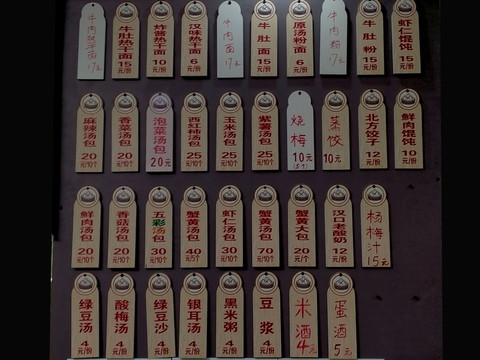 牛肉热干面 17元
牛肚热干面 15元/份
炸酱热干面 10元/份
汉味热干面 6元/份
牛肉面 17元
牛肚面 15元/份
原汤粉面 6元/份
牛肉粉 17元
牛肚粉 15元/份
虾仁馄饨 15元/份
麻辣汤包 20元/10个
香菜汤包 20元/10个
泡菜汤包 20元
西红柿汤包 25元/10个
玉米汤包 25元/10个
紫薯汤包 25元/10个
烧梅 10元
蒸饺 10元
北方饺子 12元/份
鲜肉馄饨 10元/份
鲜肉汤包 20元/10个
香菇汤包 20元/10个
五彩汤包 30元/10个
蟹黄汤包 40元/5个
虾仁汤包 30元/10个
蟹黄汤包 70元/10个
蟹黄大包 20元/1个
汉口老酸奶 12元/份
杨梅汁 15元
绿豆汤 4元/份
酸梅汤 4元/份
绿豆沙 4元/份
银耳汤 4元/份
黑米粥 4元/份
豆浆 4元/份
米酒 4元
蛋酒 5元